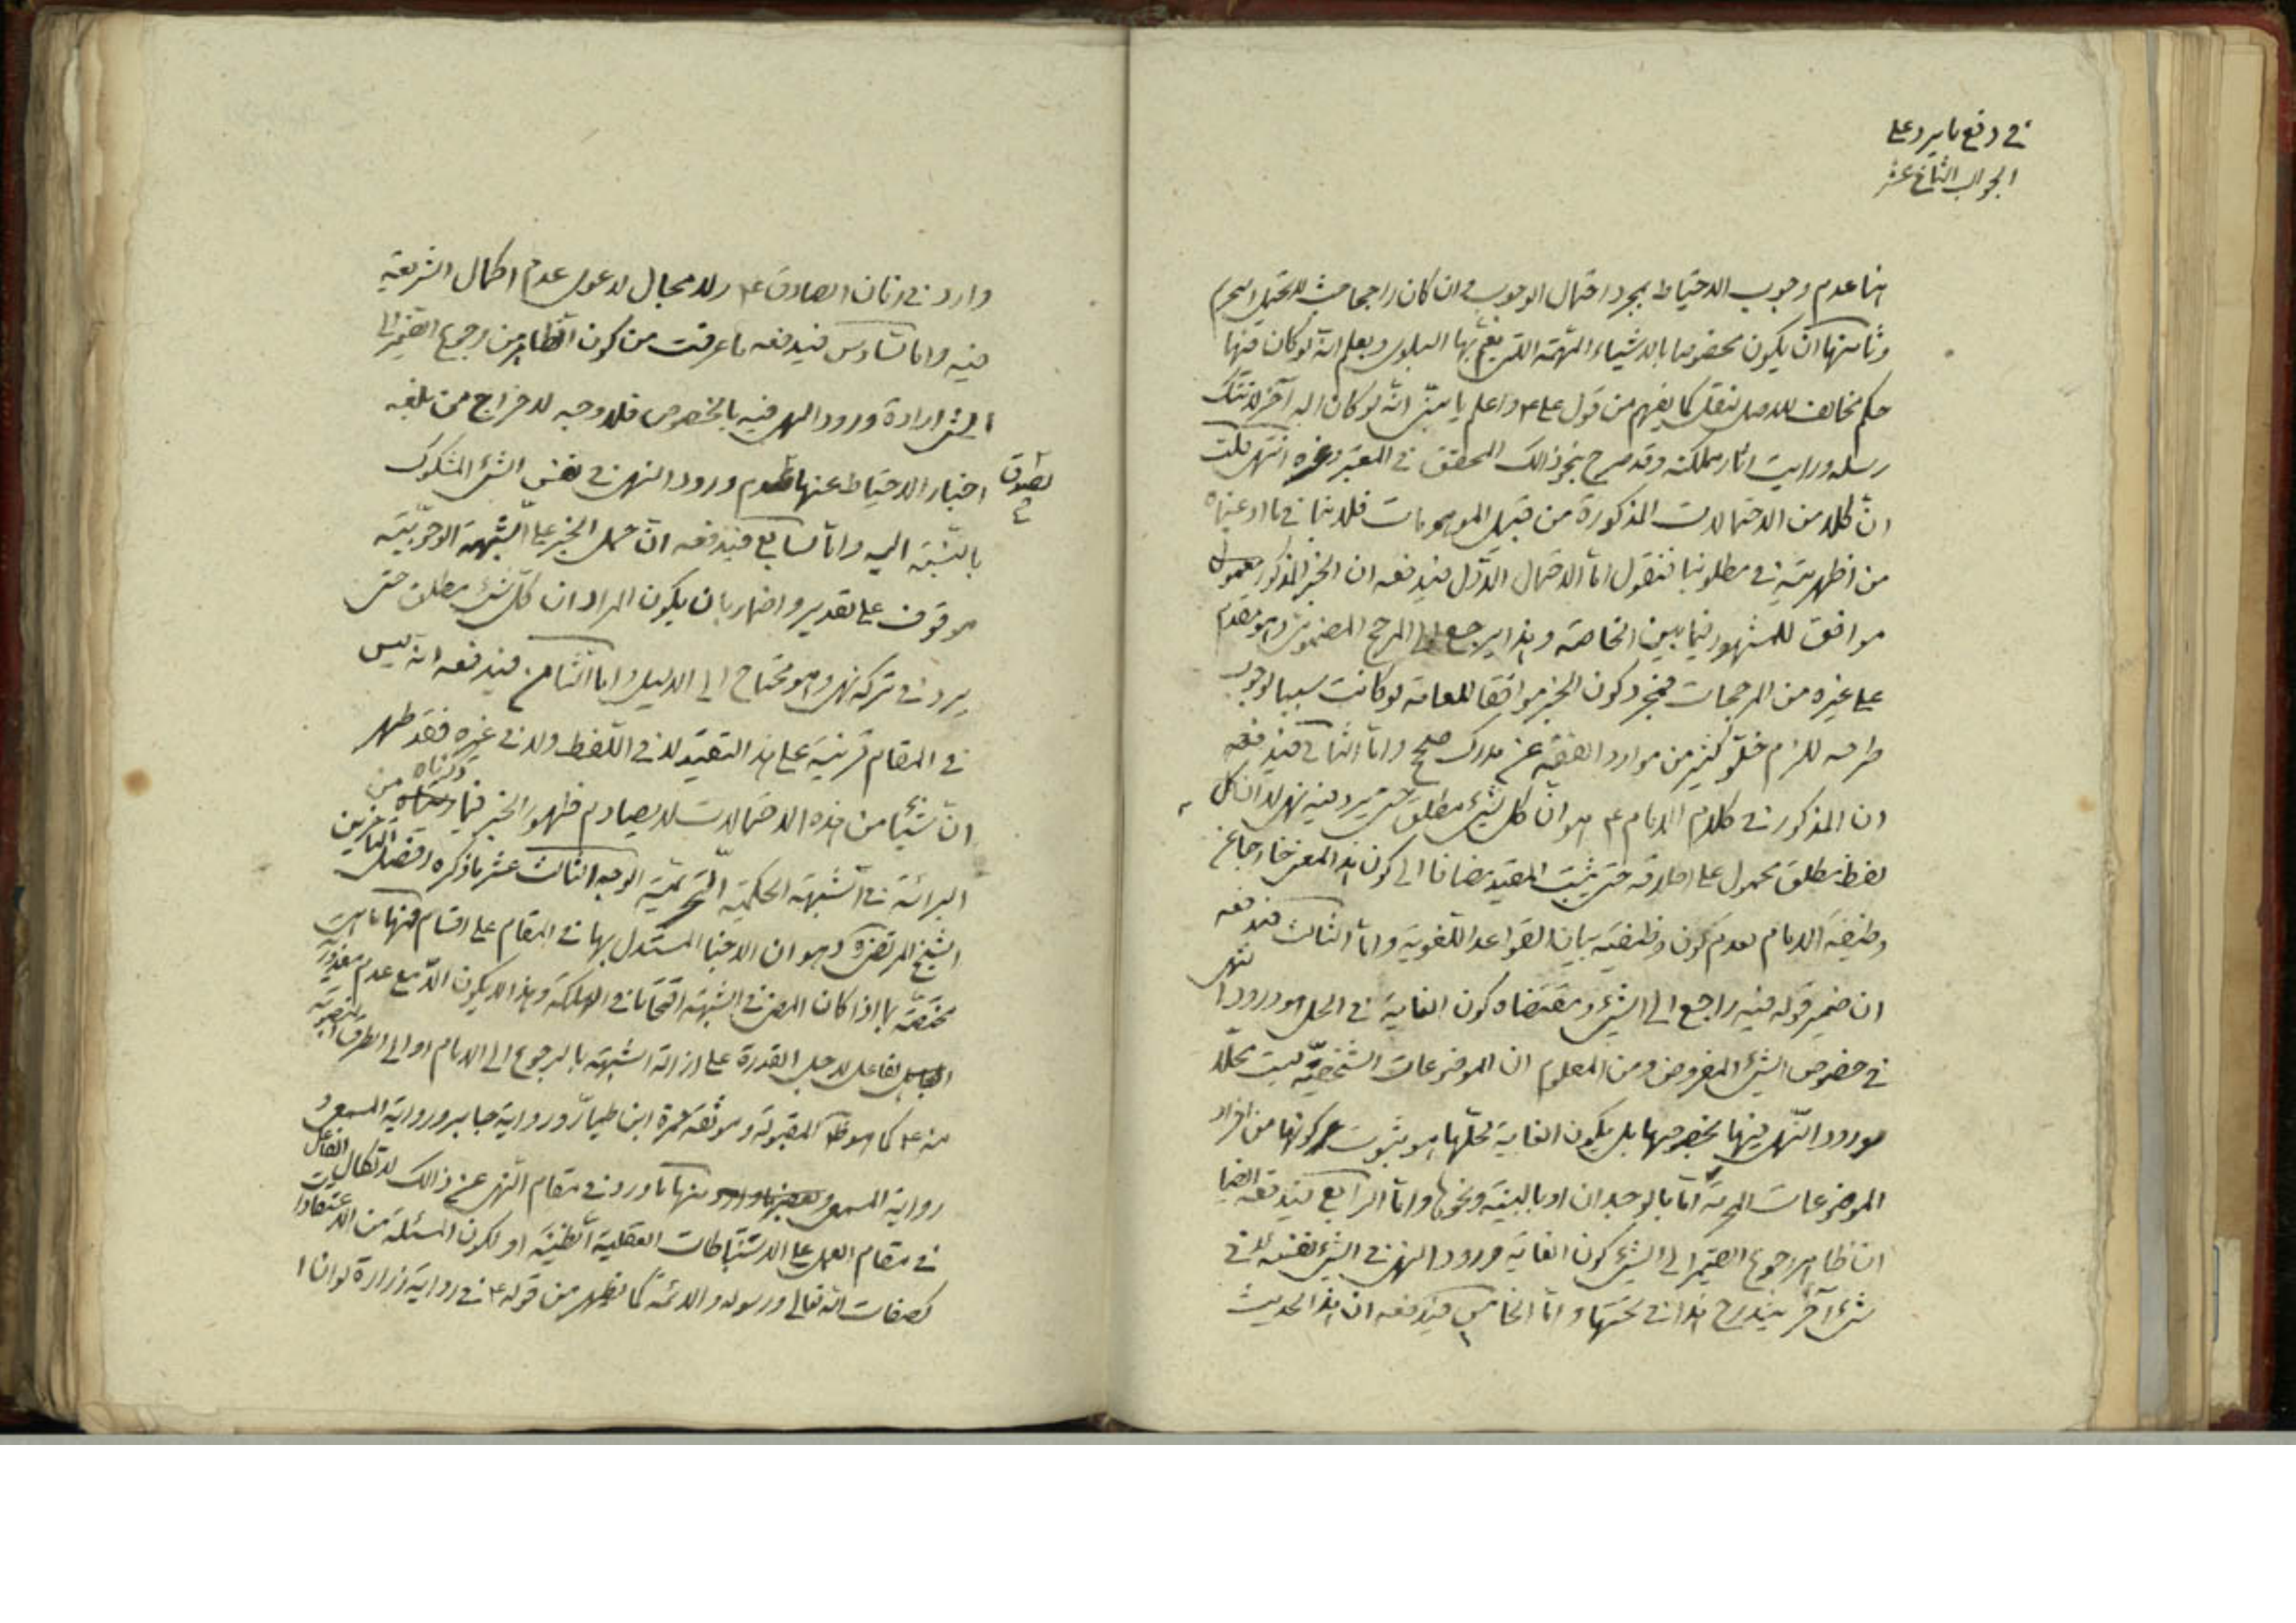 في دفع ما يرد على
الجواب الثاني عشر
هنا عدم وجوب الاحتياط بمجرد احتمال الوجوب و ان كان راجحا حيث لا يحتمل التحريم
وثامنها ان يكون مخصوصا بالاشياء المهمة التي يعم بها البلوى ويعلم انه لو كان فيها
حكم مخالف للاصل لنقل كما يفهم من قول علي ع واعلم يا بني انه لو كان اله آخر لاتتك
رسله ورايت اثار مملكته وقد صرح بنحو ذالك المحقق في المعتبر وغيره انتهى قلت
ان كلا من الاحتمالات المذكورة من قبيل الموهومات فلا ينافي ما ادعيناه
من اظهريته في مطلوبنا فنقول اما الاحتمال الاول فيدفعه ان الخبر المذكور معمول
موافق للمشهور فيما بين الخاصة وهذا يرجع الى المرجح المضموني وهو مقدم
على غيره من المرجحات فمجرد كون الخبر موافقا للعامة لو كانت سببا لوجوب
طرحه للزم خلو كثير من موارد الفقه عن مدرك صحيح واما الثاني فيدفعه
ان المذكور في كلام الامام ع هو ان كل شيء مطلق حتى يرد فيه نهي لا ان كل
لفظ مطلق محمول على اطلاقه حتى يثبت المقيد مضافا الى كون هذا المعنى خارجا عن
وظيفة الامام لعدم كون وظيفته بيان القواعد اللغوية واما الثالث فيدفعه
ان ضمير قوله فيه راجع الى الشيء ومقتضاه كون الغاية في الحل هو ورود النهي
في خصوص الشيء المفروض ومن المعلوم ان الموضوعات الشخصية ليست محلا
لورود النهي فيها بخصوصها بل يكون الغاية لحلها هو ثبوت كونها من افراد
الموضوعات المحرمة اما بالوجدان او بالبينة ونحوها واما الرابع فيدفعه ايضا
ان ظاهر رجوع الضمير الى الشيء كون الغاية ورود النهي في الشيء لنفسه لا في
شيء آخر يندرج هذا في تحتها واما الخامس فيدفعه ان هذا الحديث
وارد في زمان الصادق ع ولا مجال لدعوى عدم اكمال الشريعة
فيه واما السادس فيدفعه ما عرفت من كون الظاهر من رجوع الضمير الى
الشيء ارادة ورود النهي فيه بالخصوص فلا وجه لاخراج من بلغه
اخبار الاحتياط عنها لعدم ورود النهي في نفس الشيء المشكوك
بالنسبة اليه واما السابع فيدفعه ان حمل الخبر على الشبهة الوجوبية
موقوف على تقدير واضمار بان يكون المراد ان كل شيء مطلق حتى
يرد في تركه نهي وهو محتاج الى الدليل واما الثامن فيدفعه انه ليس
في المقام قرينة على هذا التقييد لا في اللفظ ولا في غيره فقد ظهر
ان شيئا من هذه الاحتمالات لا يصادم ظهور الخبر فيما ذكرناه من
البرائة في الشبهة الحكمية التحريمية الوجه الثالث عشر ما ذكره افضل المتأخرين
الشيخ المرتضى ره وهو ان الاخبار المستدل بها في المقام على اقسام فمنها ما هي
مختصة بما اذا كان المضي في الشبهة اقتحاما في الهلكة وهذا لا يكون الا مع عدم معذورية
الفاعل لاجل القدرة على ازالة الشبهة بالرجوع الى الامام او الى الطرق المنصوبة
منه ع كما هو ظ المقبولة وموثقة حمزة ابن طيار ورواية جابر ورواية المسمعي
ومنها ما ورد في مقام النهي عن ذالك لاتكال الفاعل
في مقام العمل على الاستنباطات العقلية الظنية او لكون المسئلة من الاعتقاديات
كصفات الله تعالى ورسوله والائمة كما يظهر من قوله ع في رواية زرارة لو ان ا